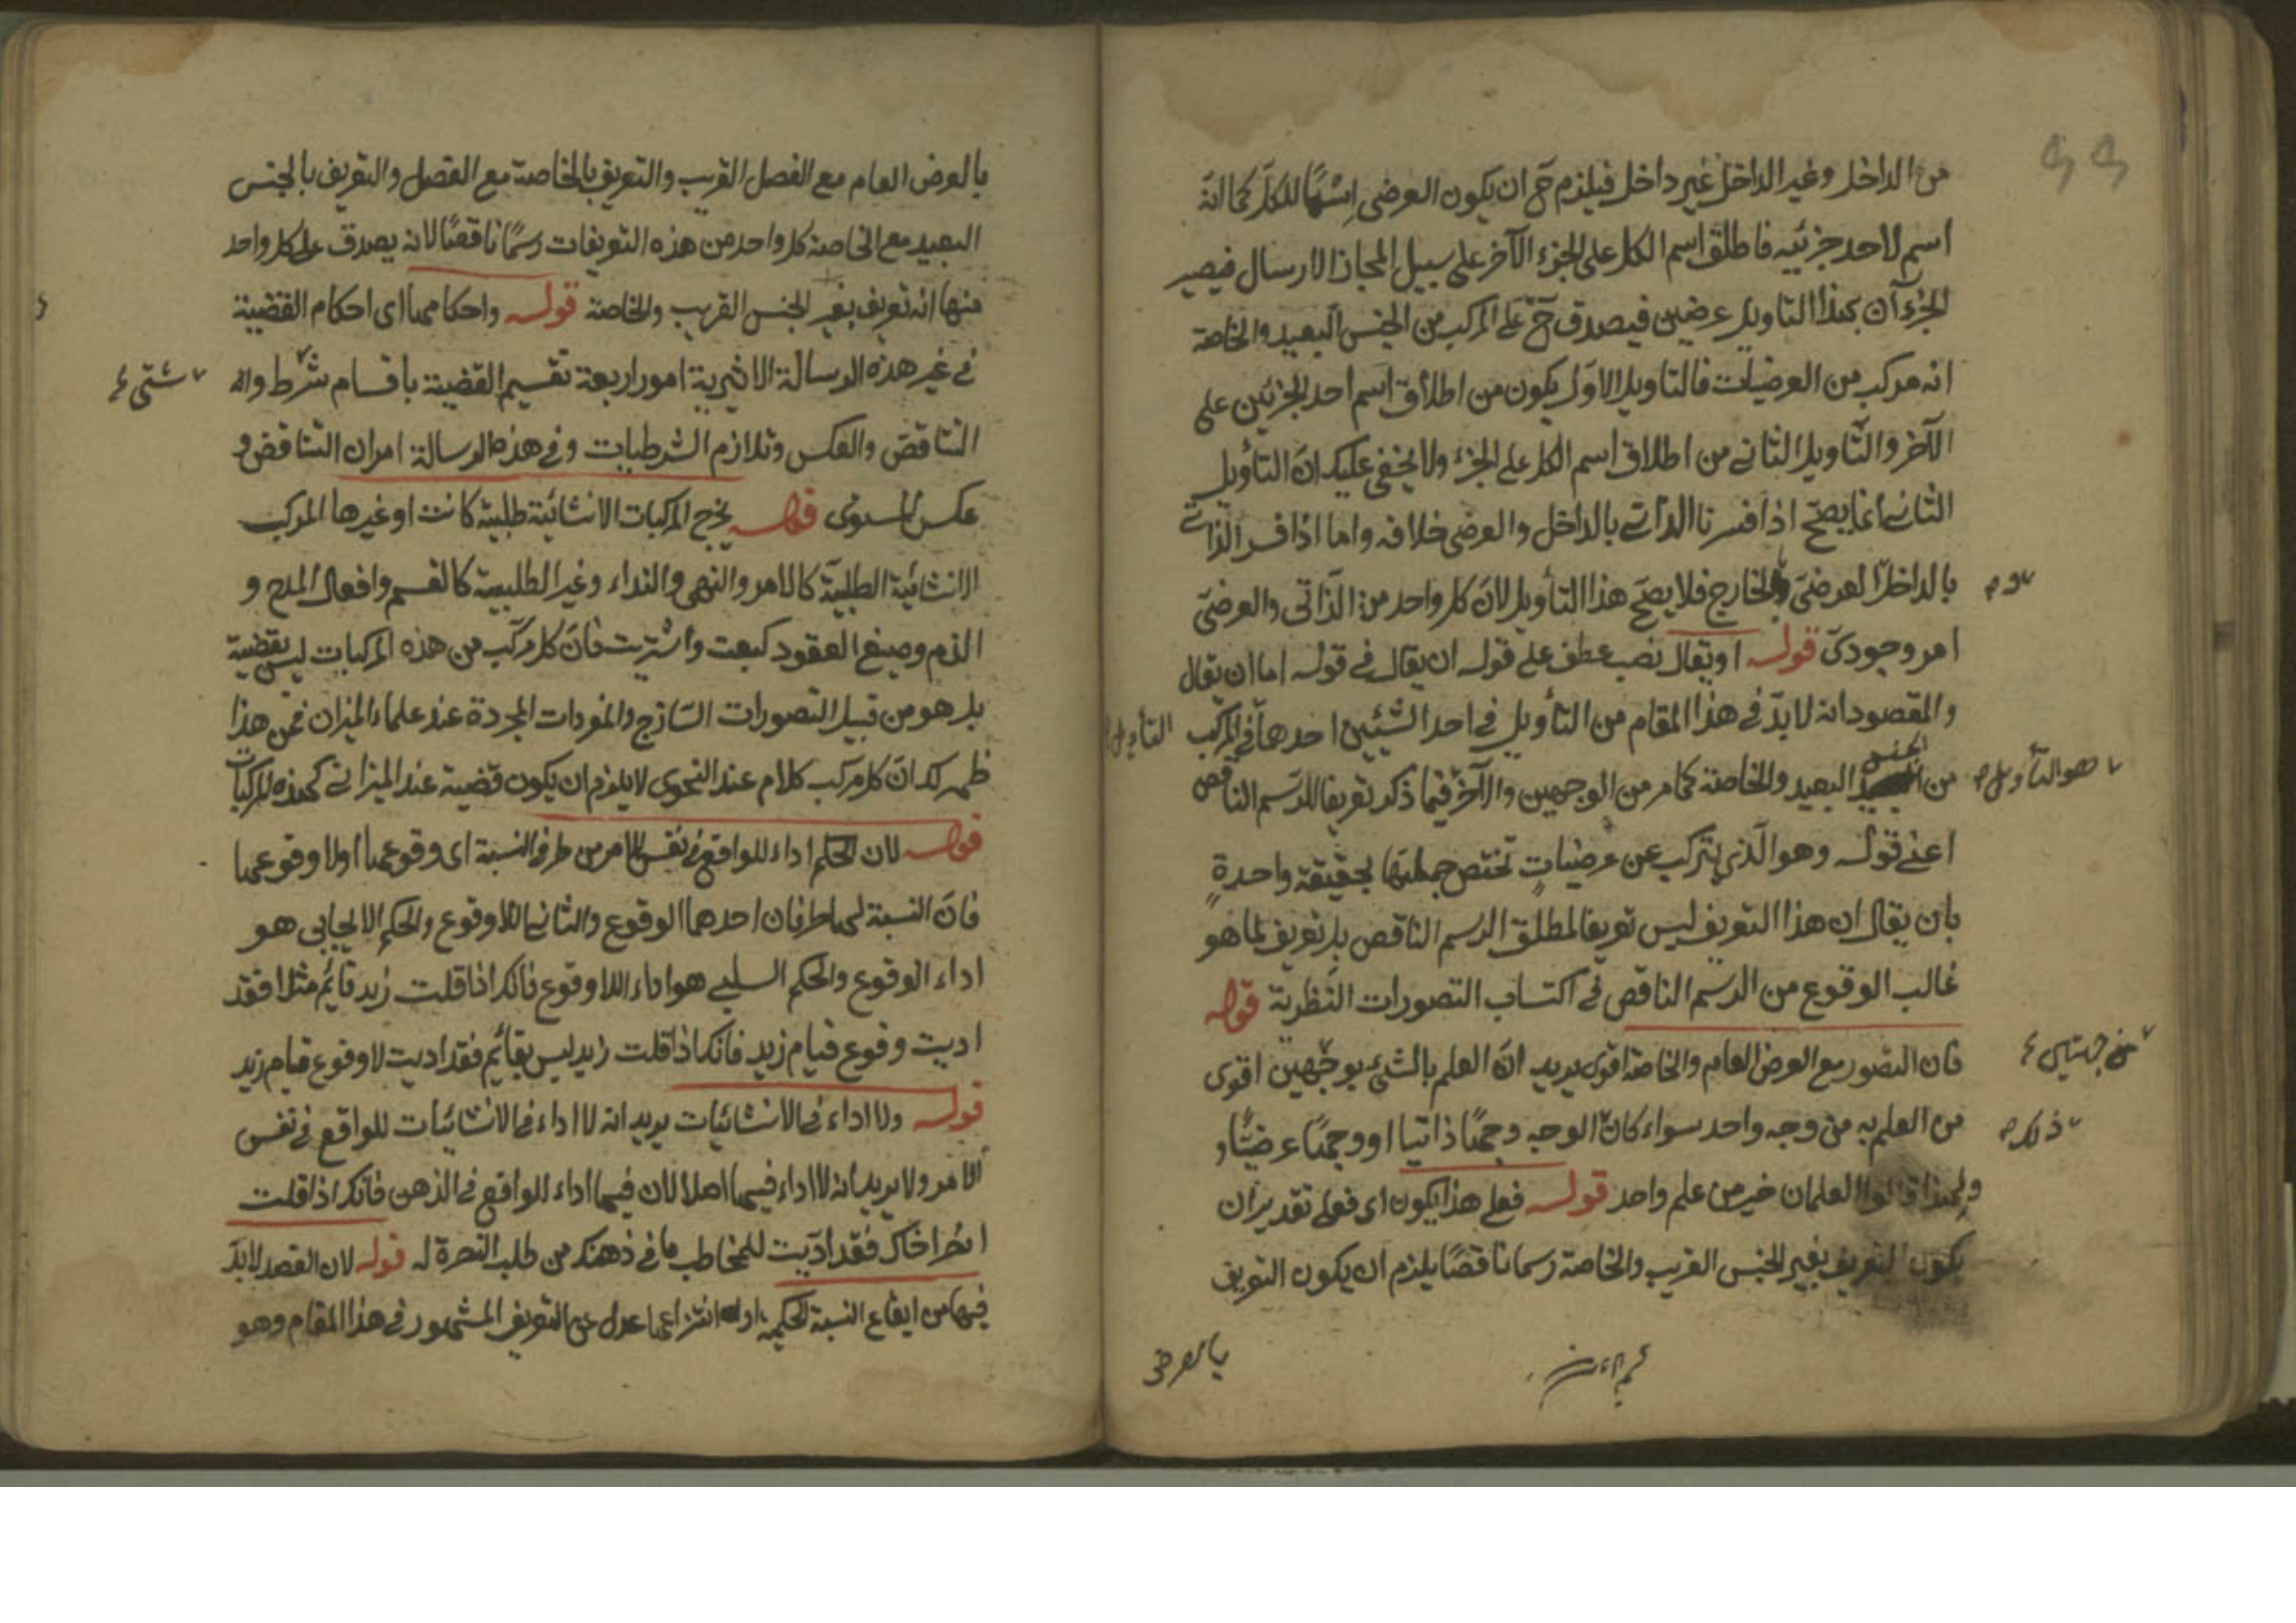 من الداخل وغير الداخل غير داخل فيلزم ح ان يكون العرضى اِسْمًا للكلّ كما انّه
اسم لاحد جزئيه فاطلق اسم الكل على الجزء الآخر على سبيل المجاز الارسال فيصير
الجزءآن بهذا التاويل عرضين فيصدق ح على المركب من الجنس البعيد والخاصة
انه مركب من العرضيات فالتاويل الاوّل يكون من اطلاق اسم احد الجزئين على
الآخر والتّاويل الثانى من اطلاق اسم الكل على الجزء ولا يخفى عليك انّ التأويل
الثانى انما يصحّ اذا فسرنا الذاتى بالداخل والعرضى خلافه واما اذا فسر الذاتى
بالداخل العرضىّ بالخارج فلا يصحّ هذا التأويل لانّ كل واحد من الذّاتى والعرضىّ
و
امر وجودىّ قوله او يقال نصب عطف على قوله ان يقال فى قوله اما ان يقال
والمقصود انه لا بدّ فى هذا المقام من التأويل فى احد الشّيئين احدهما فى المركب
التأويل
من الجنس البعيد والخاصة كما مر من الوجهين والآخر فيما ذكر تعريفا للرّسم الناقص
هو التأويل
اعنى قوله وهو الّذى يتركب عن عرضياتٍ تختص جملتها بحقيقة واحدةٍ
بان يقال ان هذا التعريف ليس تعريفا لمطلق الرسم الناقص بل تعريف لما هو
غالب الوقوع من الرسم الناقص فى اكتساب التصورات النّظرية قوله
فان التصور مع العرض العام والخاصة اقوى يريد انّ العلم بالشئ بوجهين اقوى
من جهتين
من العلم به من وجه واحد سواء كان الوجه وجهًا ذاتيا او وجهًا عرضيًّا و
ذلك
ولهذا قالوا العلمان خير من علم واحد قوله فعلى هذا يكون اى فعلى تقدير ان
يكون التعريف بغير الجنس القريب والخاصة رسما ناقصًا يلزم ان يكون التعريف
بالعرض
بالعرض العام مع الفصل القريب والتعريف بالخاصة مع الفصل والتعريف بالجنس
البعيد مع الخاصة كل واحد من هذه التعريفات رسمًا ناقصًا لانه يصدق على كل واحد
منها انه تعريف بغير الجنس القريب والخاصة قوله واحكامها اى احكام القضية
فى غير هذه الرسالة الاثيرية امور اربعة تقسيم القضية باقسام شرط واه
شتى
التناقض والعكس وتلازم الشرطيات وفى هذه الرسالة امران التناقض و
عكس المستوى قوله يخرج المركبات الانشائية طلبية كانت او غيرها المركب
الانشائية الطلبيّة كالامر والنهى والنداء وغير الطلبيية كالقسم وافعال المدح و
الذم وصيغ العقود كبعت واشتريت فانّ كل مركب من هذه المركبات ليس بقضية
بل هو من قبيل التصورات السّازج والمفردات المجردة عند علماء الميزان فمن هذا
ظهر لك انّ كل مركب كلام عند النحوى لا يلزم ان يكون قضية عند الميزانى كهذه المركبات
قوله لان الحكم اداء للواقع فى نفس الامر من طرفى النسبة اى وقوعها او لا وقوعها
فانّ النسبة لها طرفان احدهما الوقوع والثانى اللاوقوع والحكم الايجابى هو
اداء الوقوع والحكم السلبى هو اداء اللاوقوع فانك اذا قلت زيد قائم مثلا فقد
اديت وقوع قيام زيد فانك اذا قلت زيد ليس بقائم فقد اديت لا وقوع قيام زيد
قوله ولا اداء فى الانشائيات يريد انه لا اداء فى الانشائيات للواقع فى نفس
الامر ولا يريد انه لا اداء فيها اصلا لان فيها اداء للواقع فى الذهن فانك اذا قلت
انصُر اخاك فقد ادّيت للمخاطب ما فى ذهنك من طلب النصرة له قوله لان القصد لا بدّ
فيها من ايقاع النسبة الحكمية او انتزاعها عدل عن التعريف المشهور فى هذا المقام وهو